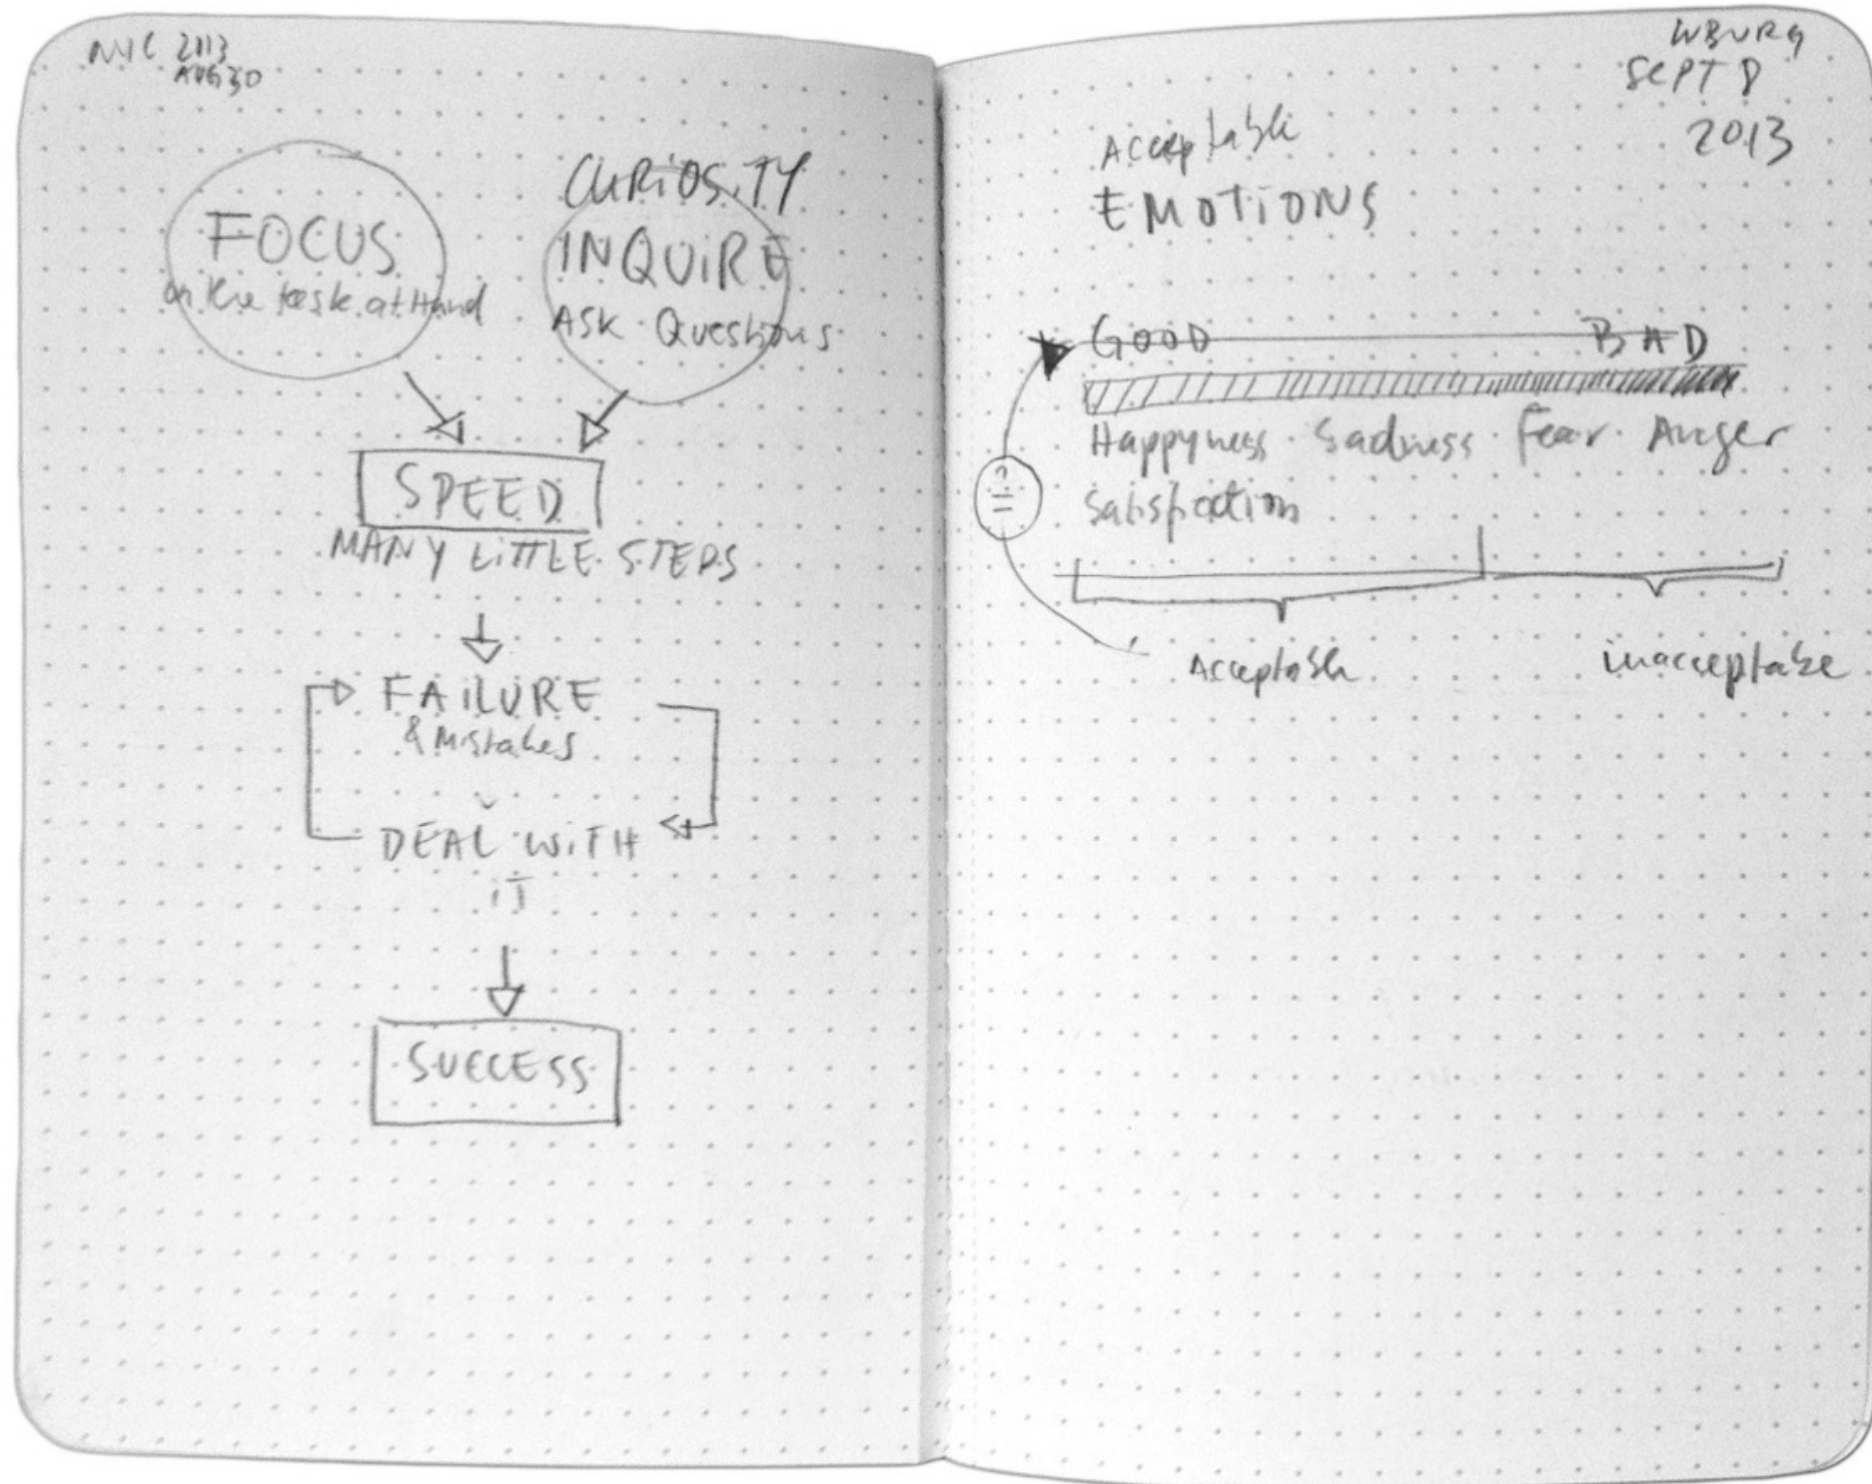 NYC 2013
AUG 30
FOCUS
on the task at Hand
CURiOSiTY
INQUiRE
ASK Questions
SPEED
MANY LiTTLE STEPS
FAiLURE
& Mistakes
DEAL WiTH
iT
SUCCESS
WBURG
SEPT 8
2013
Acceptable
EMOTiONS
GOOD BAD
Happyness Sadness Fear Anger
Satisfaction
? =
Acceptable inacceptabe